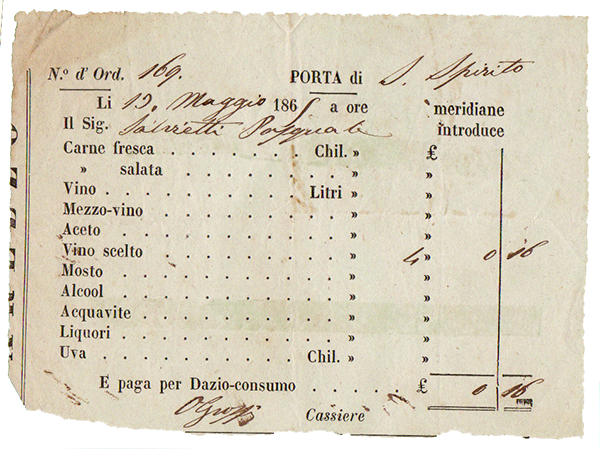 N.º d' Ord. 169. PORTA di S. Spirito
Li 19. Maggio 1865 a ore meridiane
Il Sig. Pasquale introduce
Carne fresca . . . . . . . Chil. » £
» salata . . . . . . . . . » »
Vino . . . . . . . . . . Litri » »
Mezzo-vino . . . . . . . . . » »
Aceto . . . . . . . . . . . » »
Vino scelto . . . . . . . . . » 4 » 0 16
Mosto . . . . . . . . . . . » »
Alcool . . . . . . . . . . . » »
Acquavite . . . . . . . . . . » »
Liquori . . . . . . . . . . . » »
Uva . . . . . . . . . . Chil. » »
E paga per Dazio-consumo . . . . . £ 0 16
Cassiere